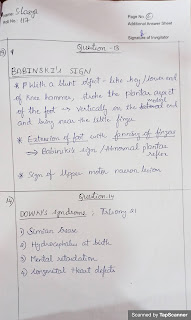 Name:
Roll No: 117
Page No.
Additional Answer Sheet
Signature of Invigilator
Question - 13
BABINSKI'S SIGN
* With a blunt object - like key / lower end
of knee hammer, stroke the plantar aspect
of the foot → vertically on the lateral end
and bring near the little finger
* Extension of foot with fanning of fingers
⇒ Babinski's sign / Abnormal plantar
reflex
* Sign of Upper motor neuron lesion
Question - 14
DOWN'S syndrome : Trisomy 21
1) Simian Crease
2) Hydrocephalus at birth
3) Mental retardation
4) Congenital Heart defects
Scanned by TapScanner